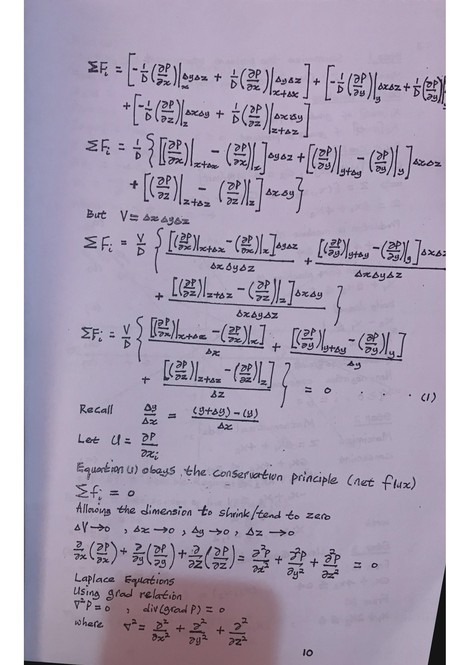 ΣFᵢ = [-1/D (∂P/∂x)|ₓ ΔyΔz + 1/D (∂P/∂x)|ₓ₊Δₓ ΔyΔz] + [-1/D (∂P/∂y)|y ΔxΔz + 1/D (∂P/∂y)|
+ [-1/D (∂P/∂z)|z ΔxΔy + 1/D (∂P/∂z)|z+Δz ΔxΔy]
ΣFᵢ = 1/D { [(∂P/∂x)|x+Δx - (∂P/∂x)|x] ΔyΔz + [(∂P/∂y)|y+Δy - (∂P/∂y)|y] ΔxΔz
+ [(∂P/∂z)|z+Δz - (∂P/∂z)|z] ΔxΔy }
But V = ΔxΔyΔz
ΣFᵢ = V/D { [(∂P/∂x)|x+Δx - (∂P/∂x)|x] ΔyΔz / ΔxΔyΔz + [(∂P/∂y)|y+Δy - (∂P/∂y)|y] ΔxΔz / ΔxΔyΔz
+ [(∂P/∂z)|z+Δz - (∂P/∂z)|z] ΔxΔy / ΔxΔyΔz }
ΣFᵢ = V/D { [(∂P/∂x)|x+Δx - (∂P/∂x)|x] / Δx + [(∂P/∂y)|y+Δy - (∂P/∂y)|y] / Δy
+ [(∂P/∂z)|z+Δz - (∂P/∂z)|z] / Δz } = 0 . . . . (1)
Recall Δy/Δx = (y+Δy)-(y) / Δx
Let U = ∂P/∂xᵢ
Equation (1) obeys the conservation principle (net flux)
Σfᵢ = 0
Allowing the dimension to shrink/tend to zero
ΔV→0 , Δx→0 , Δy→0 , Δz→0
∂/∂x (∂P/∂x) + ∂/∂y (∂P/∂y) + ∂/∂z (∂P/∂z) = ∂²P/∂x² + ∂²P/∂y² + ∂²P/∂z² = 0
Laplace Equations
Using grad relation
∇²P = 0 , div(grad P) = 0
where ∇² = ∂²/∂x² + ∂²/∂y² + ∂²/∂z²
10